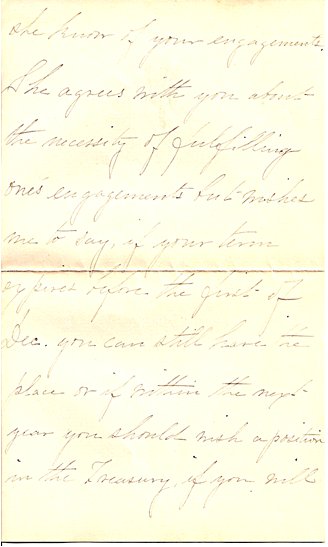 she know of your engagements.
She agrees with you about
the necessity of fulfilling
one's engagements but wishes
me to say, if your term
expires before the first of
Dec. you can still have the
place or if within the next
year you should wish a position
in the Treasury, if you will